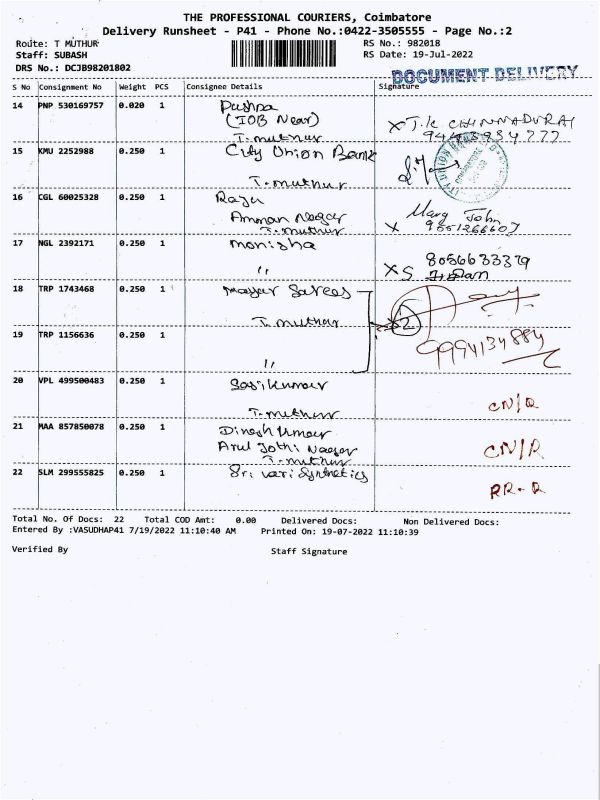 THE PROFESSIONAL COURIERS, Coimbatore
Delivery Runsheet - P41 - Phone No.:0422-3505555 - Page No.:2
Route: T MUTHUR RS No.: 982018
Staff: SUBASH RS Date: 19-Jul-2022
DRS No.: DCJB98201802
DOCUMENT DELIVERY
S No Consignment No Weight PCS Consignee Details Signature
14 PNP 530169757 0.020 1 Pushpa
(IOB Near)
T. muthur
15 KMU 2252988 0.250 1 City Union Bank
T. muthur
16 CGL 60025328 0.250 1 Raju
Amman Nagar
T. muthur
Mary John
17 NGL 2392171 0.250 1 monisha
8056633379
"
18 TRP 1743468 0.250 1 Sarees
T. muthur
2
19 TRP 1156636 0.250 1
9994134884
"
20 VPL 499500483 0.250 1 Sasikumar
T. muthur
CN/R
21 MAA 857850078 0.250 1 Dinesh Kumar
Arul Jothi Nagar
T. muthur
CN/R
22 SLM 299555825 0.250 1 Sri Vari Synthetics
RR-R
Total No. Of Docs: 22 Total COD Amt: 0.00 Delivered Docs: Non Delivered Docs:
Entered By :VASUDHAP41 7/19/2022 11:10:40 AM Printed On: 19-07-2022 11:10:39
Verified By Staff Signature